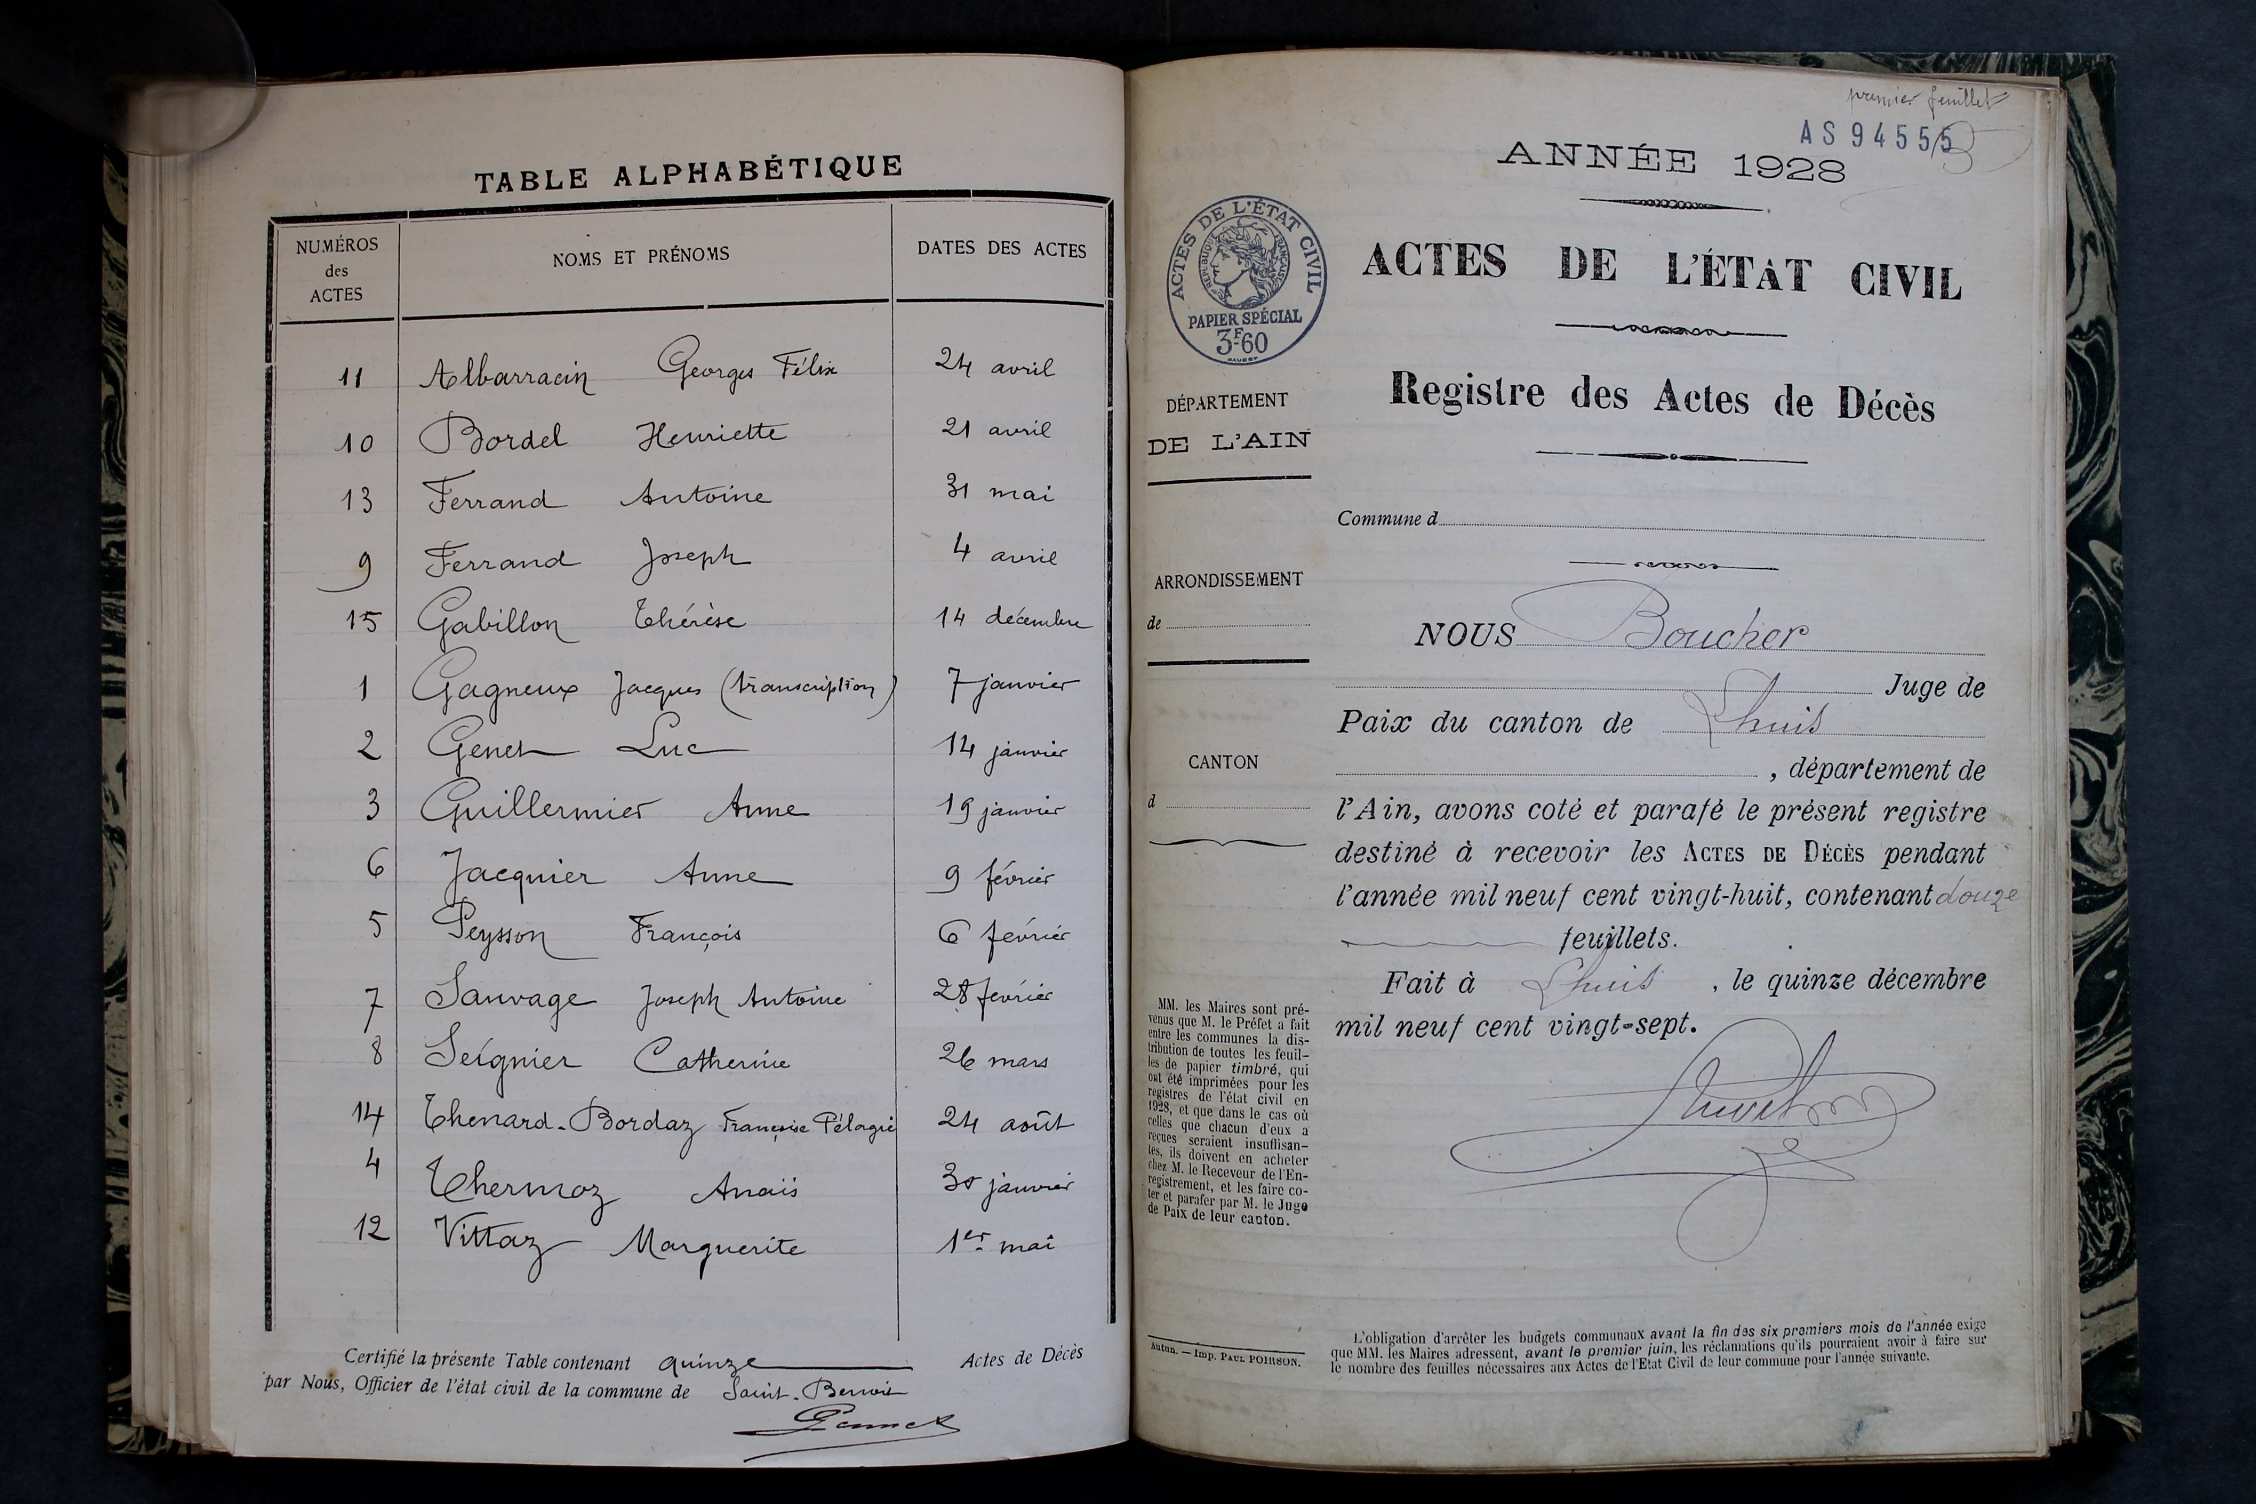 TABLE ALPHABÉTIQUE
NUMÉROS
des
ACTES
NOMS ET PRÉNOMS
DATES DES ACTES
11 Albarracin Georges Félix 24 avril
10 Bordel Henriette 21 avril
13 Ferrand Antoine 31 mai
9 Ferrand Joseph 4 avril
15 Gabillon Thérèse 14 décembre
1 Gagneux Jacques (transcription) 7 janvier
2 Genet Luc 14 janvier
3 Guillermier Anne 19 janvier
6 Jacquier Anne 9 février
5 Peysson François 6 février
7 Sauvage Joseph Antoine 28 février
8 Seignier Catherine 26 mars
14 Thenard-Bordaz Françoise Pélagie 24 août
4 Thermoz Anaïs 30 janvier
12 Vittaz Marguerite 1er mai
Certifié la présente Table contenant quinze Actes de Décès
par Nous, Officier de l'état civil de la commune de Saint-Benoit
premier feuillet
AS 94555
ANNÉE 1928
ACTES DE L'ÉTAT CIVIL
RÉPUBLIQUE FRANÇAISE
PAPIER SPÉCIAL
3F60
ACTES DE L'ÉTAT CIVIL
Registre des Actes de Décès
DÉPARTEMENT
DE L'AIN
Commune d
ARRONDISSEMENT
de
CANTON
d
NOUS Boucher
Juge de
Paix du canton de Lhuis
, département de
l'Ain, avons coté et parafé le présent registre
destiné à recevoir les ACTES DE DÉCÈS pendant
l'année mil neuf cent vingt-huit, contenant douze
feuillets.
Fait à Lhuis, le quinze décembre
mil neuf cent vingt-sept.
MM. les Maires sont pré-
venus que M. le Préfet a fait
entre les communes la dis-
tribution de toutes les feuil-
les de papier timbré, qui
ont été imprimées pour les
registres de l'état civil en
1928, et que dans le cas où
celles que chacun d'eux a
reçues seraient insuffisan-
tes, ils doivent en acheter
chez M. le Receveur de l'En-
registrement, et les faire co-
ter et parafer par M. le Juge
de Paix de leur canton.
Autun. — Imp. PAUL POIRSON.
L'obligation d'arrêter les budgets communaux avant la fin des six premiers mois de l'année exige
que MM. les Maires adressent, avant le premier juin, les réclamations qu'ils pourraient avoir à faire sur
le nombre des feuilles nécessaires aux Actes de l'Etat Civil de leur commune pour l'année suivante.